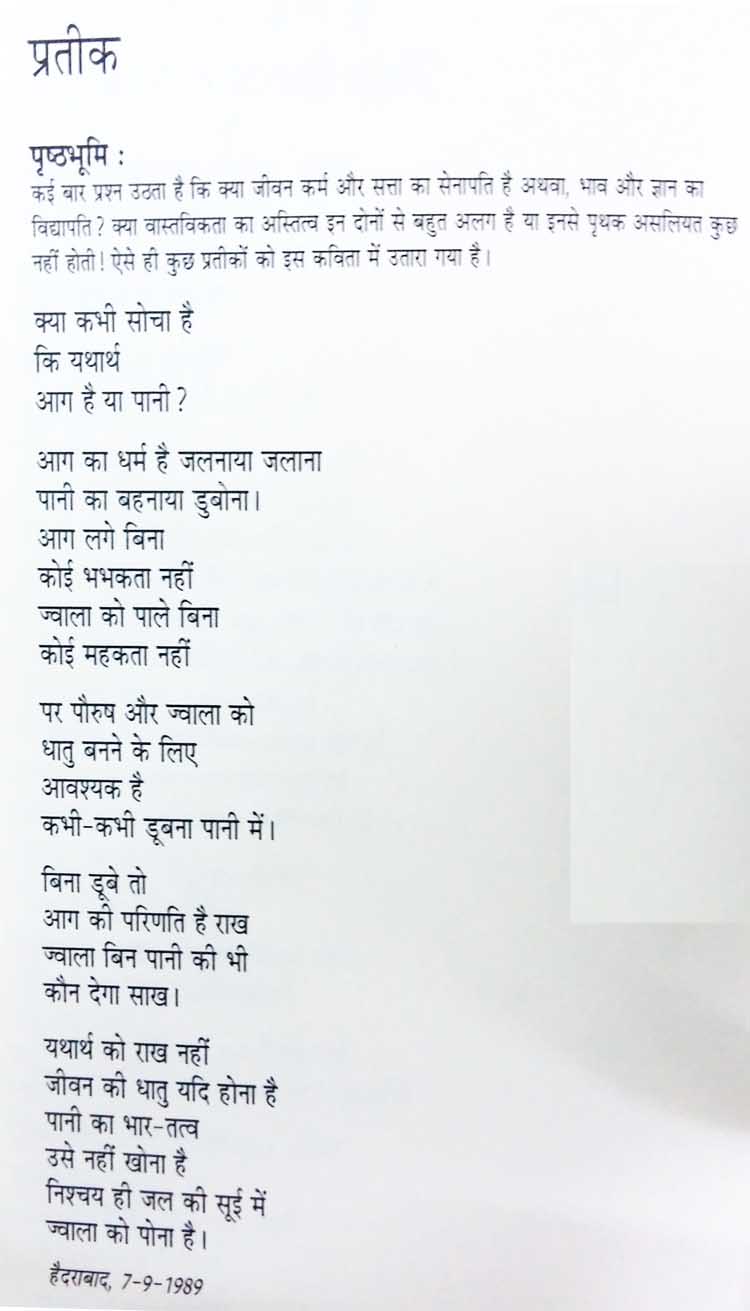 प्रतीक
पृष्ठभूमि :
कई बार प्रश्न उठता है कि क्या जीवन कर्म और सत्ता का सेनापति है अथवा, भाव और ज्ञान का
विद्यापति? क्या वास्तविकता का अस्तित्व इन दोनों से बहुत अलग है या इनसे पृथक असलियत कुछ
नहीं होती! ऐसे ही कुछ प्रतीकों को इस कविता में उतारा गया है।
क्या कभी सोचा है
कि यथार्थ
आग है या पानी?
आग का धर्म है जलनाया जलाना
पानी का बहनाया डुबोना।
आग लगे बिना
कोई भभकता नहीं
ज्वाला को पाले बिना
कोई महकता नहीं
पर पौरुष और ज्वाला को
धातु बनने के लिए
आवश्यक है
कभी-कभी डूबना पानी में।
बिना डूबे तो
आग की परिणति है राख
ज्वाला बिन पानी की भी
कौन देगा साख।
यथार्थ को राख नहीं
जीवन की धातु यदि होना है
पानी का भार-तत्व
उसे नहीं खोना है
निश्चय ही जल की सूई में
ज्वाला को पोना है।
हैदराबाद, 7-9-1989